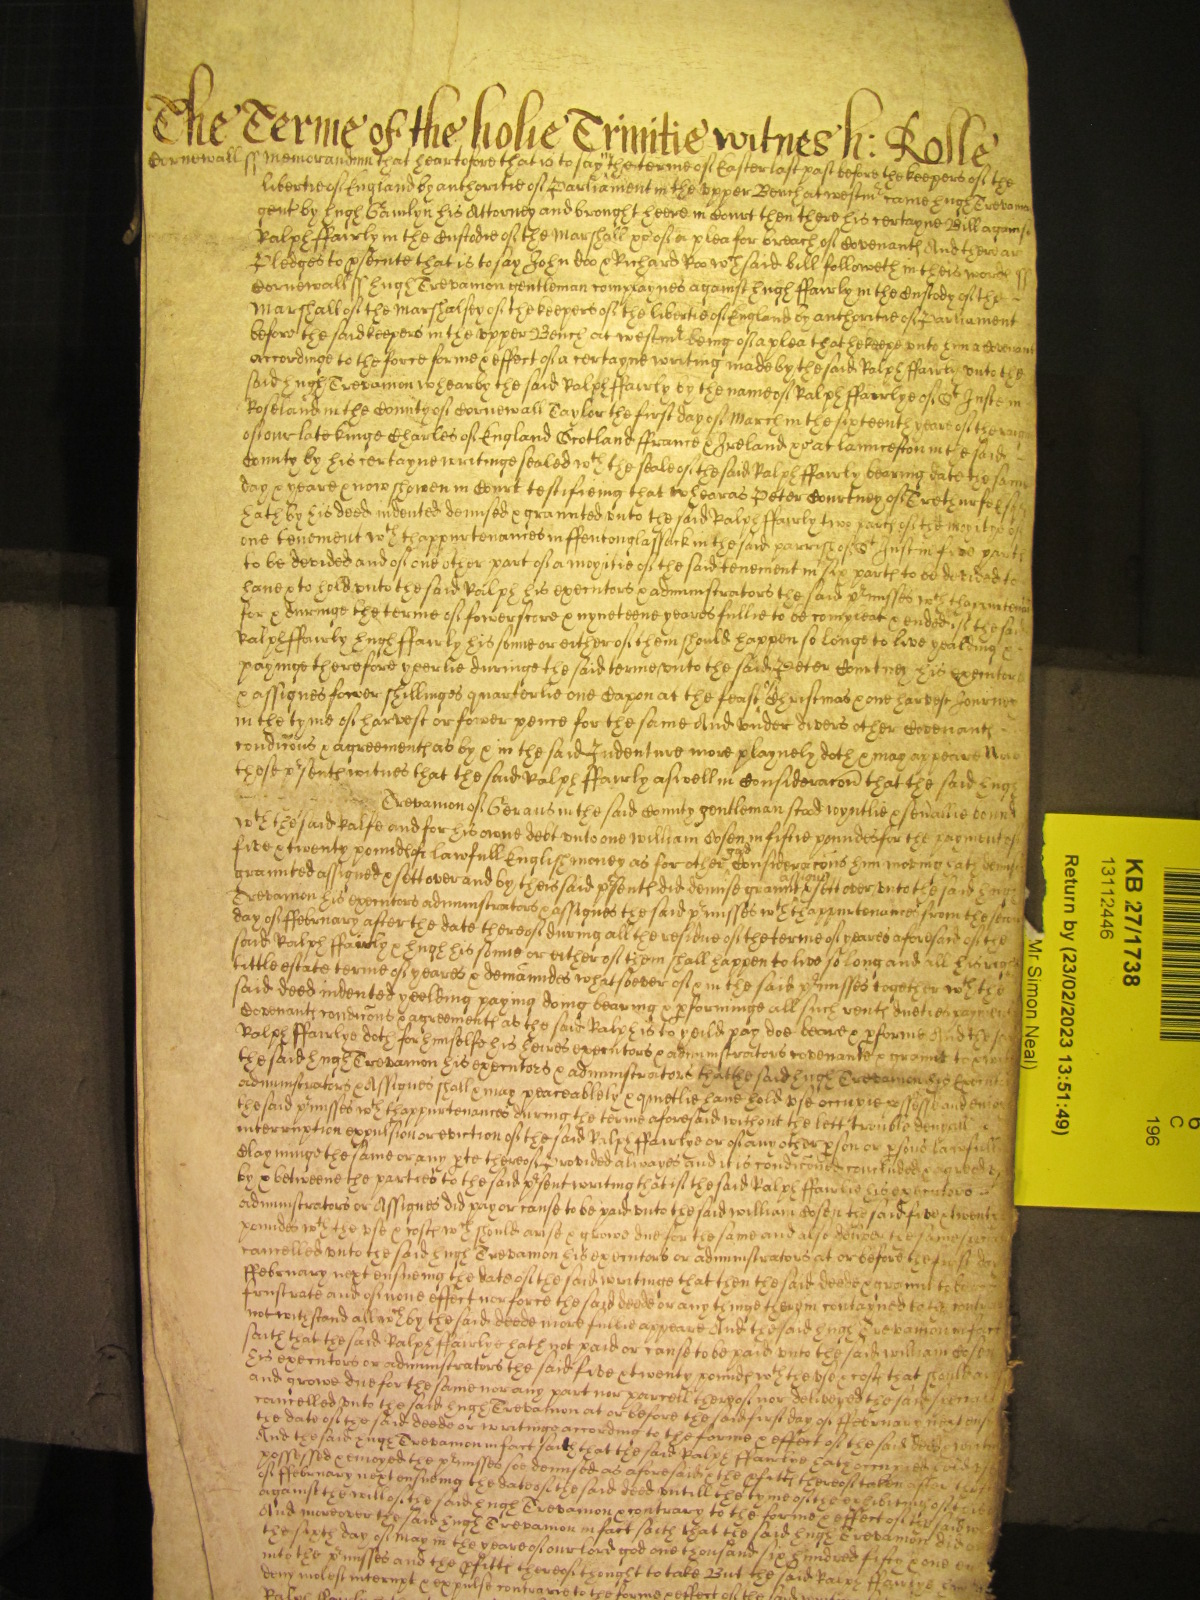 The Terme of the holie Trinitie witnes h: Rolle
Cornewall ss Memorandum that heartofore that is to say the terme of Easter last past before the keepers of the
libertie of England by authoritie of Parliament in the upper Bench at westmr came hugh Trevanion
gent by hugh Gawlyn his Attorney and brought heere in Court then there his certayne Bill against
Ralph ffairly in the Custodie of the Marshall &c of a plea for breach of Covenant And there are
Pledges to psecute that is to say John doo & Richard Roo wch said bill followeth in theis words ss
Cornewall ss hugh Trevanion gentleman complaynes against hugh ffairly in the Custody of the
Marshall of the Marshalsey of the keepers of the libertie of England by authoritie of Parliament
before the said keepers in the upper Bench at westmr being of a plea that he keepe unto hym a Covenant
accordinge to the force forme & effect of a certayne writing made by the said Ralph ffairly unto the
said hugh Trevanion whearby the said Ralph ffairly by the name of Ralph ffairlye of St Juste in
Roseland in the County of Cornewall Taylor the first day of March in the sixteenth yeare of the raigne
of our late kinge Charles of England Scotland ffrance & Ireland &c at lanceston in the said
County by his certayne writinge sealed wth the seale of the said Ralph ffairly bearing date the same
day & yeare & now showen in Court testifieing that whearas Peter Courtney of Trethurfe
hath by his deed indented demised & graunted unto the said Ralph ffairly two parts of the moytye of
one tenement wth thappurtenances in ffentonglassack in the said parrish of St Just in five parts
to be devided and of one other part of a moytie of the said tenement in six parts to be devided to
have & to hold unto the said Ralph his executors & administrators the said pmisses wth thappurtenances
for & duringe the terme of fowerscore & nyneteene yeares fullie to be compleat & ended if the said
Ralph ffairly hugh ffairly his sonne or either of them should happen so longe to live yealding &
payinge therefore yeerlie duringe the said terme unto the said Peter Courtney his executors
& assignes fower shillinges quarterlie one Capon at the feast of Christmas & one harvest Journey
in the tyme of harvest or fower pence for the same And under divers other Covenants
condicons & agreements as by & in the said Indenture more playnely doth & may appeare Now
these psents witnes that the said Ralph ffairly aswell in Consideracon that the said hugh
Trevanion of Gerans in the said County gentleman stood joyntlie & severallie bound
wth the said Ralfe and for his owne debt unto one william Cosen in fiftie poundes for the payment of
five & twenty pounds of lawfull English money as for other good Consideracons him moving hath demised
graunted assigned & sett over and by theis said psents did demise graunt assigne & sett over unto the said hugh
Trevanion his executors administrators & assignes the said pmisses wth thappurtenances from the
day of ffebruary after the date thereof during all the residue of the terme of yeares aforesaid if the
said Ralph ffairly & hugh his sonne or either of them shall happen to live so long and all his right
tittle estate terme of yeares & demaundes whatsoever of & in the said pmisses together wth the
said deed indented yeelding paying doing bearing & pforminge all such rents dueties payments
Covenants condicons & agreements as the said Ralph is to yeild pay doe beare & pforme And the said
Ralph ffairlye doth for himselfe his heires executors & administrators covenante & graunt to & with
the said hugh Trevanion his executors & administrators that the said hugh Trevanion his Executors
administrators & Assignes shall & may peaceablely & quietlie have hold use occupie possesse and enjoy
the said pmisses wth thappurtenances during the terme aforesaid without the lett trouble denyall
interruption expulsion or eviction of the said Ralph ffairlye or of any other pson or psons lawfully
Clayminge the same or any pte thereof Provided alwayes and it is condiconed concluded & agreed
by & betweene the parties to the said psent writing that if the said Ralph ffairlie his executors
administrators or Assignes did pay or cause to be paid unto the said william Cosen the said five & twentie
poundes wth the use & costs wch should arise & growe due for the same and also deliver the same
cancelled unto the said hugh Trevanion his executors or administrators at or before the first day
ffebruary next ensueing the date of the said writinge that then the said deede & graunt to be
frustrate and of none effect nor force the said deede or any thinge therein contayned to the contrary
notwithstandall wch by the said deede more fullie appeare And the said hugh Trevanion in fact
saith that the said Ralph ffairlye hath not paid or cause to be paid unto the said william Cosen
his executors or administrators the said five & twenty pounds wth the use & costs that should
and growe due for the same nor any part nor parcell thereof nor delivered the said
cancelled unto the said hugh Trevanion at or before the said first day of ffebruary next
the date of the said deede or writing according to the forme & effect of the said deed
And the said hugh Trevanion in fact saith that the said Ralph ffairlye hath
possessed & enjoyed the pmisses soe demised as aforesaid & the pfitts thereof taken after the
of ffebruary next ensueing the date of the said deed untill the tyme of the exhibiting of
against the will of the said hugh Trevanion & contrary to the forme & effect of the said
And moreover the said hugh Trevanion in fact saith that the said hugh Trevanion did on
the sixth day of may in the yeare of our lord god one thousand six hundred fifty & one
into the pmisses and the pfitts thereof thought to take But the said Ralph ffairlye
deny molest interrupt & expulse contrarie to the forme & effect of the said
KB 27/1738
13112446
Return by (23/02/2023 13:51:49)
Mr Simon Neal)
6
C
196